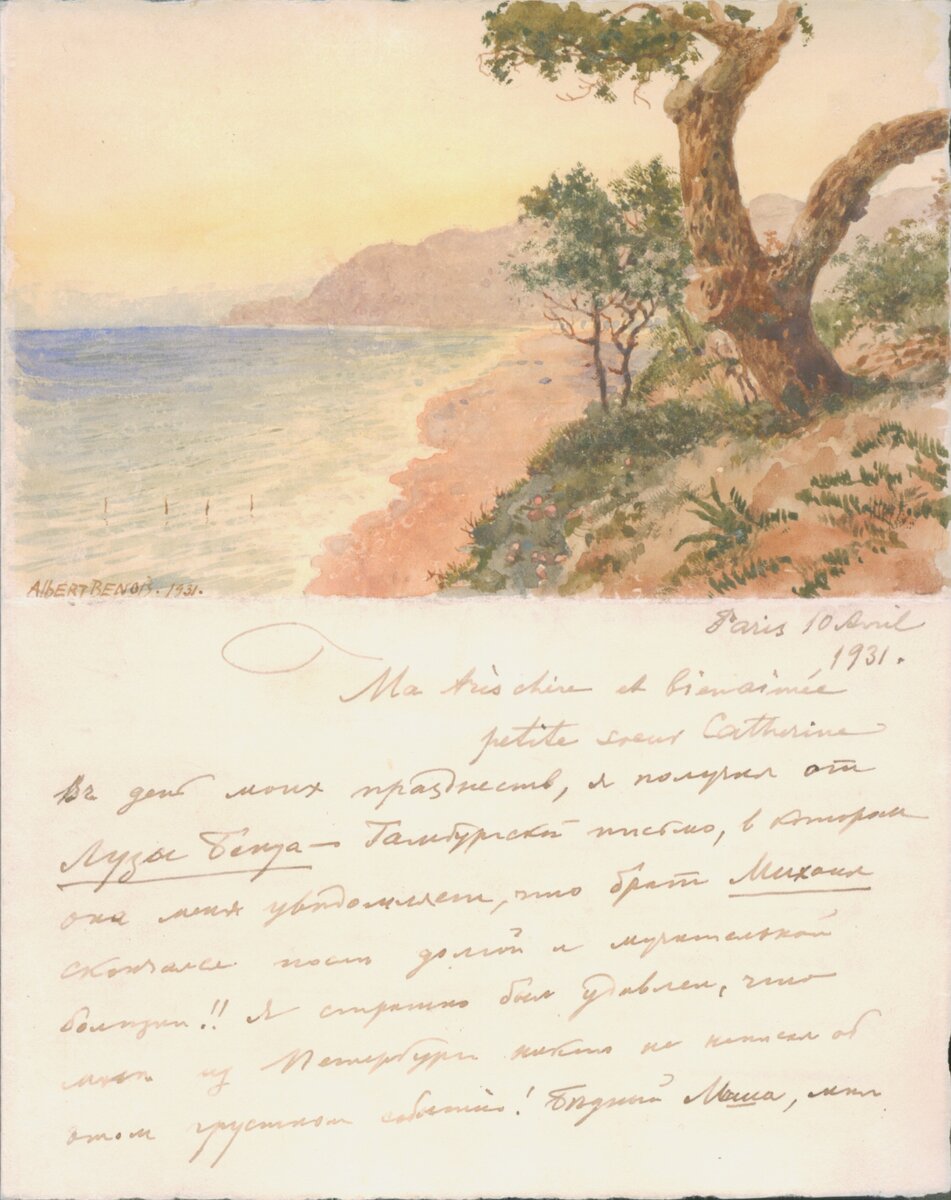 AlbERT BENOIS. 1931.
Paris 10 Avril
1931.
Ma très chère et bienaimée
petite soeur Catherine
Въ день моих празднеств, я получил от
Луизы Бенуа – Гамбургской письмо, в котором
она меня уведомляет, что брат Михаил
скончался после долгой и мучительной
болезни!! Я страшно был удивлен, что
мне из Петербурга никто не написал об
этом грустном событии! Бедный Миша, мил